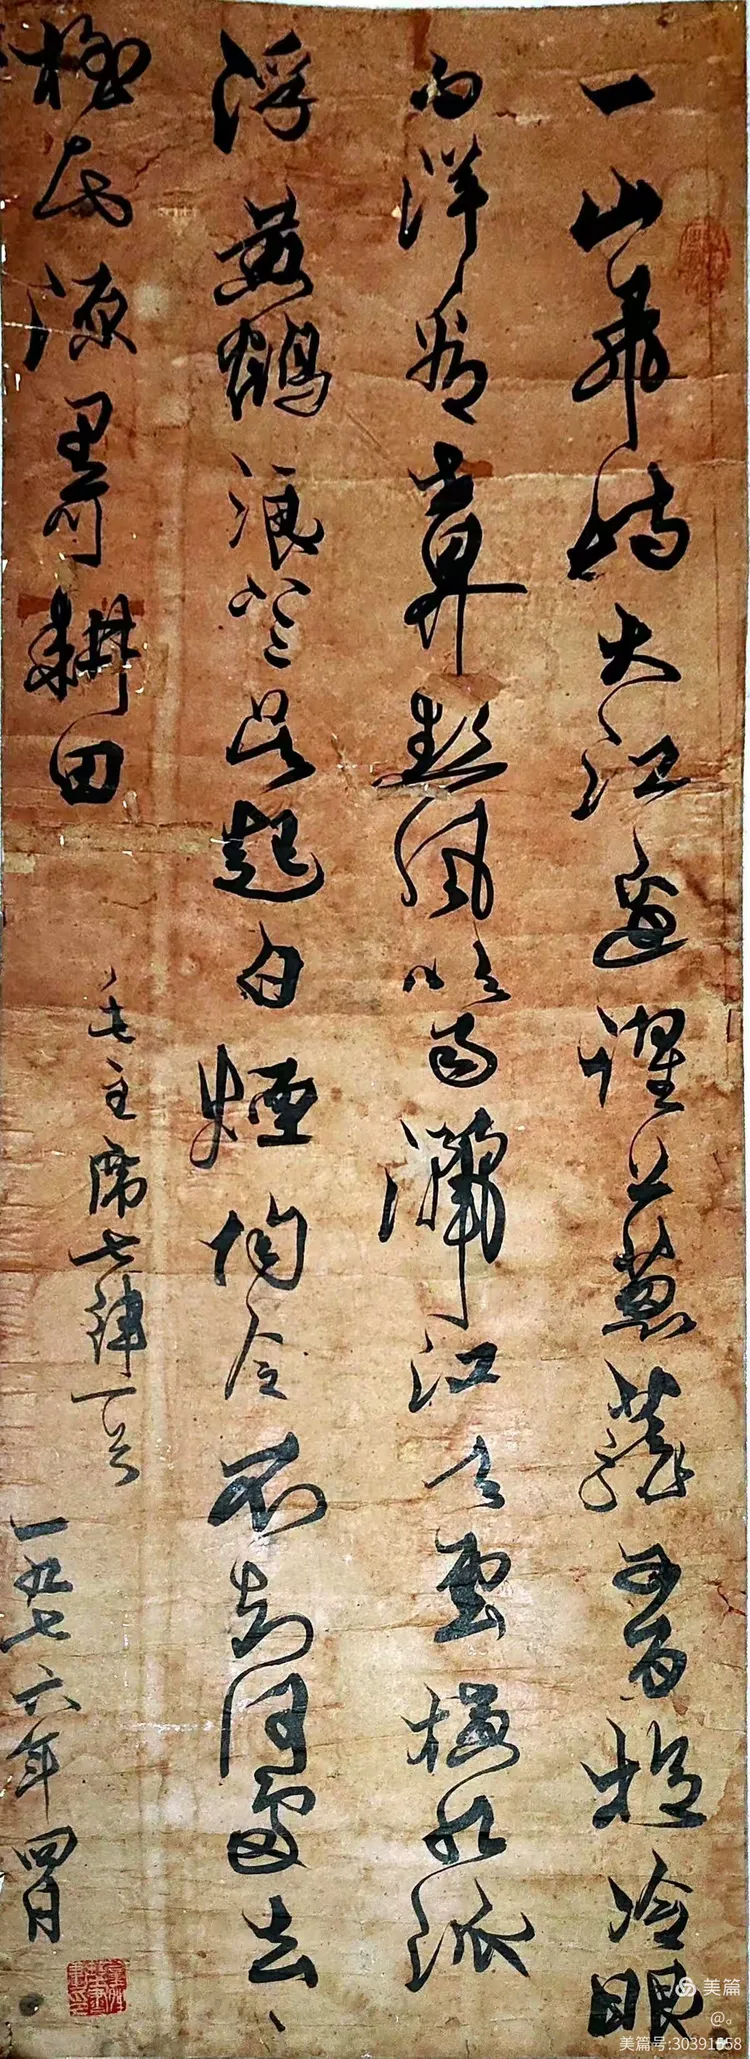 一山飛峙大江邊躍上蔥蘢四百旋冷眼
向洋看世界熱風吹雨灑江天雲橫九派
浮黃鶴浪下三吳起白煙陶令不知何處去、
桃花源里可耕田
毛主席七律一首
一九七六年四月
美篇
@。
美篇号:30391558